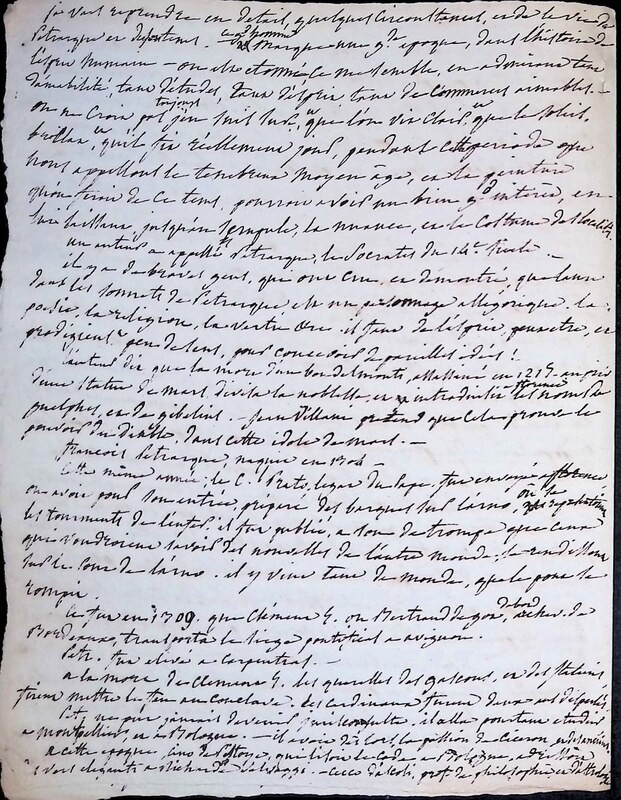 je vais reprendre en détail, quelques circonstances, et de la vie de
Petrarque et du tems. ce gd homme marque une gde epoque, dans l'histoire de
l'esprit humain — on est etonné ce me semble, en admirant tant
d'amabilité, tant d'études, tant d'esprit, tant de commerces aimables. —
on ne croit pas toujours que l'on vit clair, que le soleil
brillat, qu'il fit réellement jour, pendant cette periode que
nous appellons le tenebreux moyen age, et la peinture
qu'on feroit de ce tems, pourroit avoir un bien gd interêt, en
lui laissant, jusqu'au scrupule, la nuance, et le costume des localités
un auteur a appellé Petrarque, le Socrate du 14e siecle —
il y a de braves gens, qui ont cru, et démontré, que laure
dans les sonnets de Petrarque, est un personnage allegorique. la
poesie, la religion, la vertu &c. il faut de l'esprit, peut etre, et
prodigieust peu de sens, pour concevoir de pareilles idées!
l'auteur dit que la mort d'un bondelmonte, assassiné en 1215. au pied
d'une statue de mars, divisa la noblesse, et introduisit florence les noms de
guelphes, et de gibelins. — Jean Villani pretend que cela prouve le
pouvoir du diable, dans cette idole de mars. —
François Petrarque, naquit en 1304
Cette même année, le C. Prato, legat du Pape, fut envoyé florence
on avoit pour son entrée, préparé des barques sur l'arno, où la representation
les tourments de l'enfer. il fut publié, a son de trompe, que ceux
qui voudroient savoir des nouvelles de l'autre monde, se rendissent
sur le pont de l'arno. il y vint tant de monde, que le pont se
rompit.
Ce fut en 1309. que Clément 5. ou Bertrand de got, d'abord archev. de
Bordeaux, transporta le siege pontifical a avignon.
Petr. fut elevé a carpentras. —
a la mort de Clement 5. les querelles des gascons, et des italiens,
firent mettre le feu au conclave. les cardinaux furent deux ans dispersés.
Petr. ne put jamais devenir jurisconsulte. il alla pourtant etudier
a montpellier, et a Bologne. — il avoit dès lors la passion de Ciceron, et des anciens.
a cette epoque, cino de Pistoye, expliquoit le code, a Bologne, et
vers elegants a — cecco d'ascoli, prof. de philosophie et d'astrologie